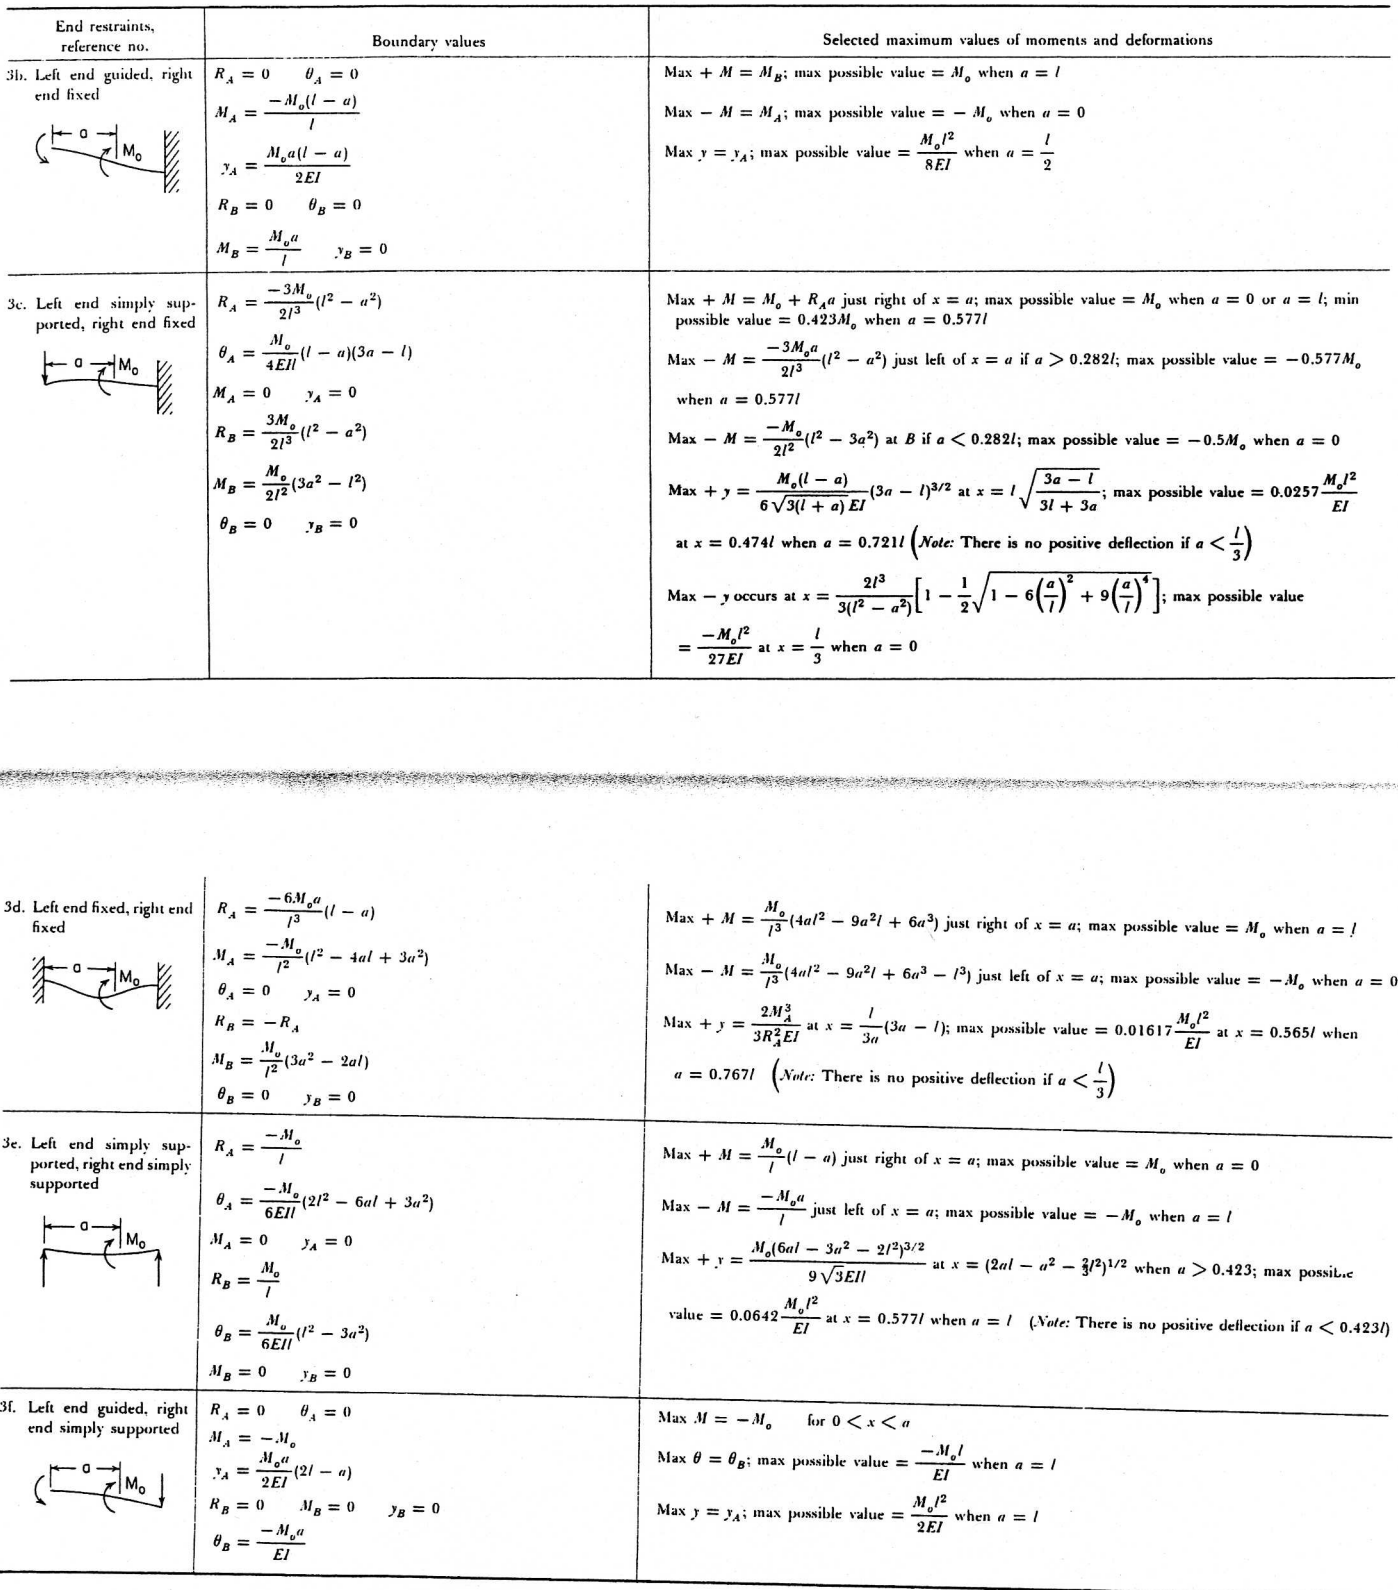 End restraints,
reference no.
Boundary values
Selected maximum values of moments and deformations
3b. Left end guided, right
end fixed
a
M₀
R_A = 0 θ_A = 0
M_A = −M_o(l − a)/l
y_A = M_o a(l − a)/2EI
R_B = 0 θ_B = 0
M_B = M_o a/l y_B = 0
Max + M = M_B; max possible value = M_o when a = l
Max − M = M_A; max possible value = − M_o when a = 0
Max y = y_A; max possible value = M_o l²/8EI when a = l/2
3c. Left end simply sup-
ported, right end fixed
a
M₀
R_A = −3M_o/2l³ (l² − a²)
θ_A = M_o/4EIl (l − a)(3a − l)
M_A = 0 y_A = 0
R_B = 3M_o/2l³ (l² − a²)
M_B = M_o/2l² (3a² − l²)
θ_B = 0 y_B = 0
Max + M = M_o + R_A a just right of x = a; max possible value = M_o when a = 0 or a = l; min
possible value = 0.423M_o when a = 0.577l
Max − M = −3M_o a/2l³ (l² − a²) just left of x = a if a > 0.282l; max possible value = −0.577M_o
when a = 0.577l
Max − M = −M_o/2l² (l² − 3a²) at B if a < 0.282l; max possible value = −0.5M_o when a = 0
Max + y = M_o(l − a)/6√3(l + a) EI (3a − l)^3/2 at x = l √(3a − l/3l + 3a); max possible value = 0.0257 M_o l²/EI
at x = 0.474l when a = 0.721l (Note: There is no positive deflection if a < l/3)
Max − y occurs at x = 2l³/3(l² − a²) [1 − 1/2 √(1 − 6(a/l)² + 9(a/l)⁴)]; max possible value
= −M_o l²/27EI at x = l/3 when a = 0
3d. Left end fixed, right end
fixed
a
M₀
R_A = −6M_o a/l³ (l − a)
M_A = −M_o/l² (l² − 4al + 3a²)
θ_A = 0 y_A = 0
R_B = −R_A
M_B = M_o/l² (3a² − 2al)
θ_B = 0 y_B = 0
Max + M = M_o/l³ (4al² − 9a²l + 6a³) just right of x = a; max possible value = M_o when a = l
Max − M = M_o/l³ (4al² − 9a²l + 6a³ − l³) just left of x = a; max possible value = −M_o when a = 0
Max + y = 2M_A³/3R_A²EI at x = l/3a (3a − l); max possible value = 0.01617 M_o l²/EI at x = 0.565l when
a = 0.767l (Note: There is no positive deflection if a < l/3)
3e. Left end simply sup-
ported, right end simply
supported
a
M₀
R_A = −M_o/l
θ_A = −M_o/6EIl (2l² − 6al + 3a²)
M_A = 0 y_A = 0
R_B = M_o/l
θ_B = M_o/6EIl (l² − 3a²)
M_B = 0 y_B = 0
Max + M = M_o/l (l − a) just right of x = a; max possible value = M_o when a = 0
Max − M = −M_o a/l just left of x = a; max possible value = −M_o when a = l
Max + y = M_o(6al − 3a² − 2l²)^3/2/9√3EIl at x = (2al − a² − ⅔l²)^1/2 when a > 0.423; max possible
value = 0.0642 M_o l²/EI at x = 0.577l when a = l (Note: There is no positive deflection if a < 0.423l)
3f. Left end guided, right
end simply supported
a
M₀
R_A = 0 θ_A = 0
M_A = −M_o
y_A = M_o a/2EI (2l − a)
R_B = 0 M_B = 0 y_B = 0
θ_B = −M_o a/EI
Max M = −M_o for 0 < x < a
Max θ = θ_B; max possible value = −M_o l/EI when a = l
Max y = y_A; max possible value = M_o l²/2EI when a = l